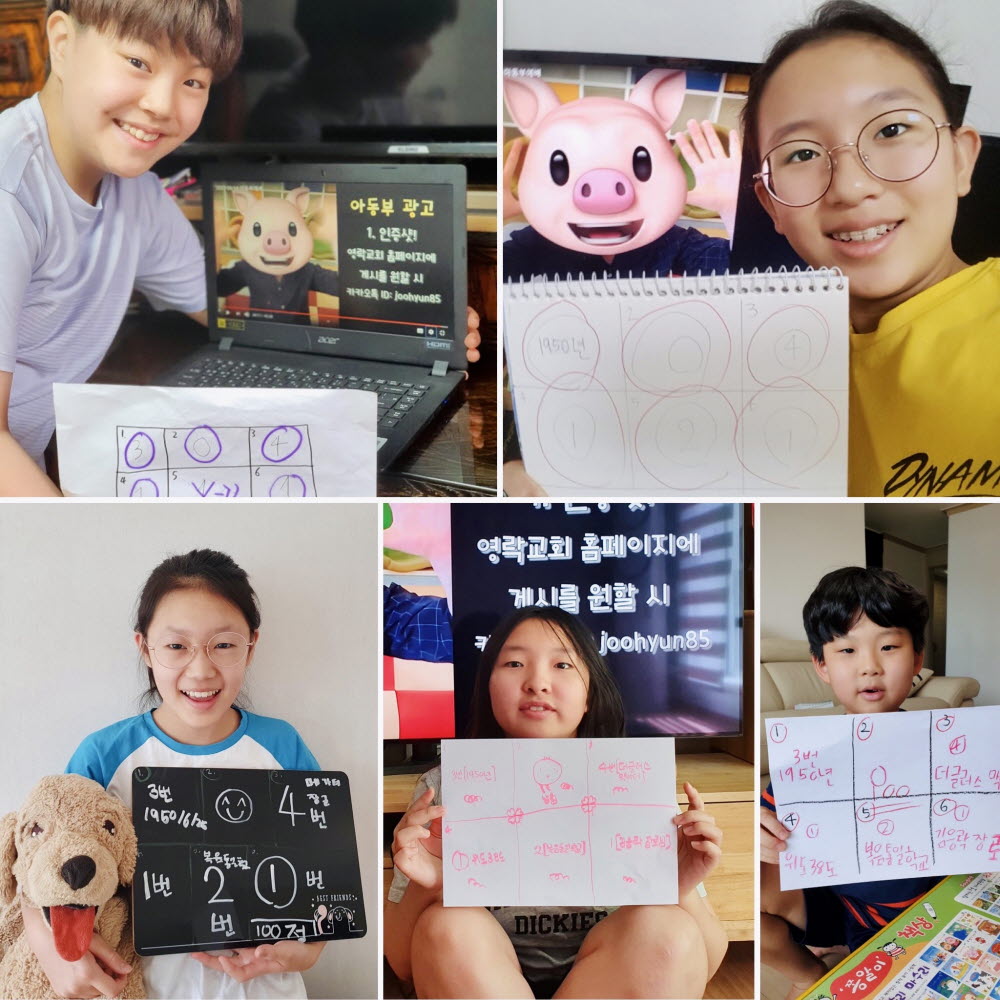 아동부 광고
1. 인증샷!
영락교회 홈페이지에
게시를 원할 시
카카오톡 ID: joohyun85
acer
HDMI
1 3
2 0
3 4
4
5
6
1950년
2 0
3 4
1
2
1
DYNAM
영락교회 홈페이지에
게시를 원할 시
joohyun85
3번
1950/6/25
4번
장군
1번
복음통일학교
2번
1번
100점
BEST FRIENDS
3번(1950년)
4번(더글러스
1 위도38도
DICKIES
1
3번
1950년
2
3
4
더글러스 맥
4
1
위도 38도
5
2
복음통일학교
6
1
김응락 장로
책상